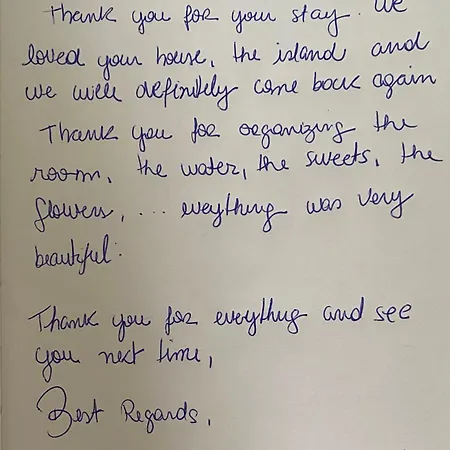 Thank you for your stay. We
loved your house, the island and
we will definitely come back again
Thank you for organizing the
room, the water, the sweets, the
flowers, ... eveything was very
beautiful.
Thank you for everything and see
you next time,
Best Regards,